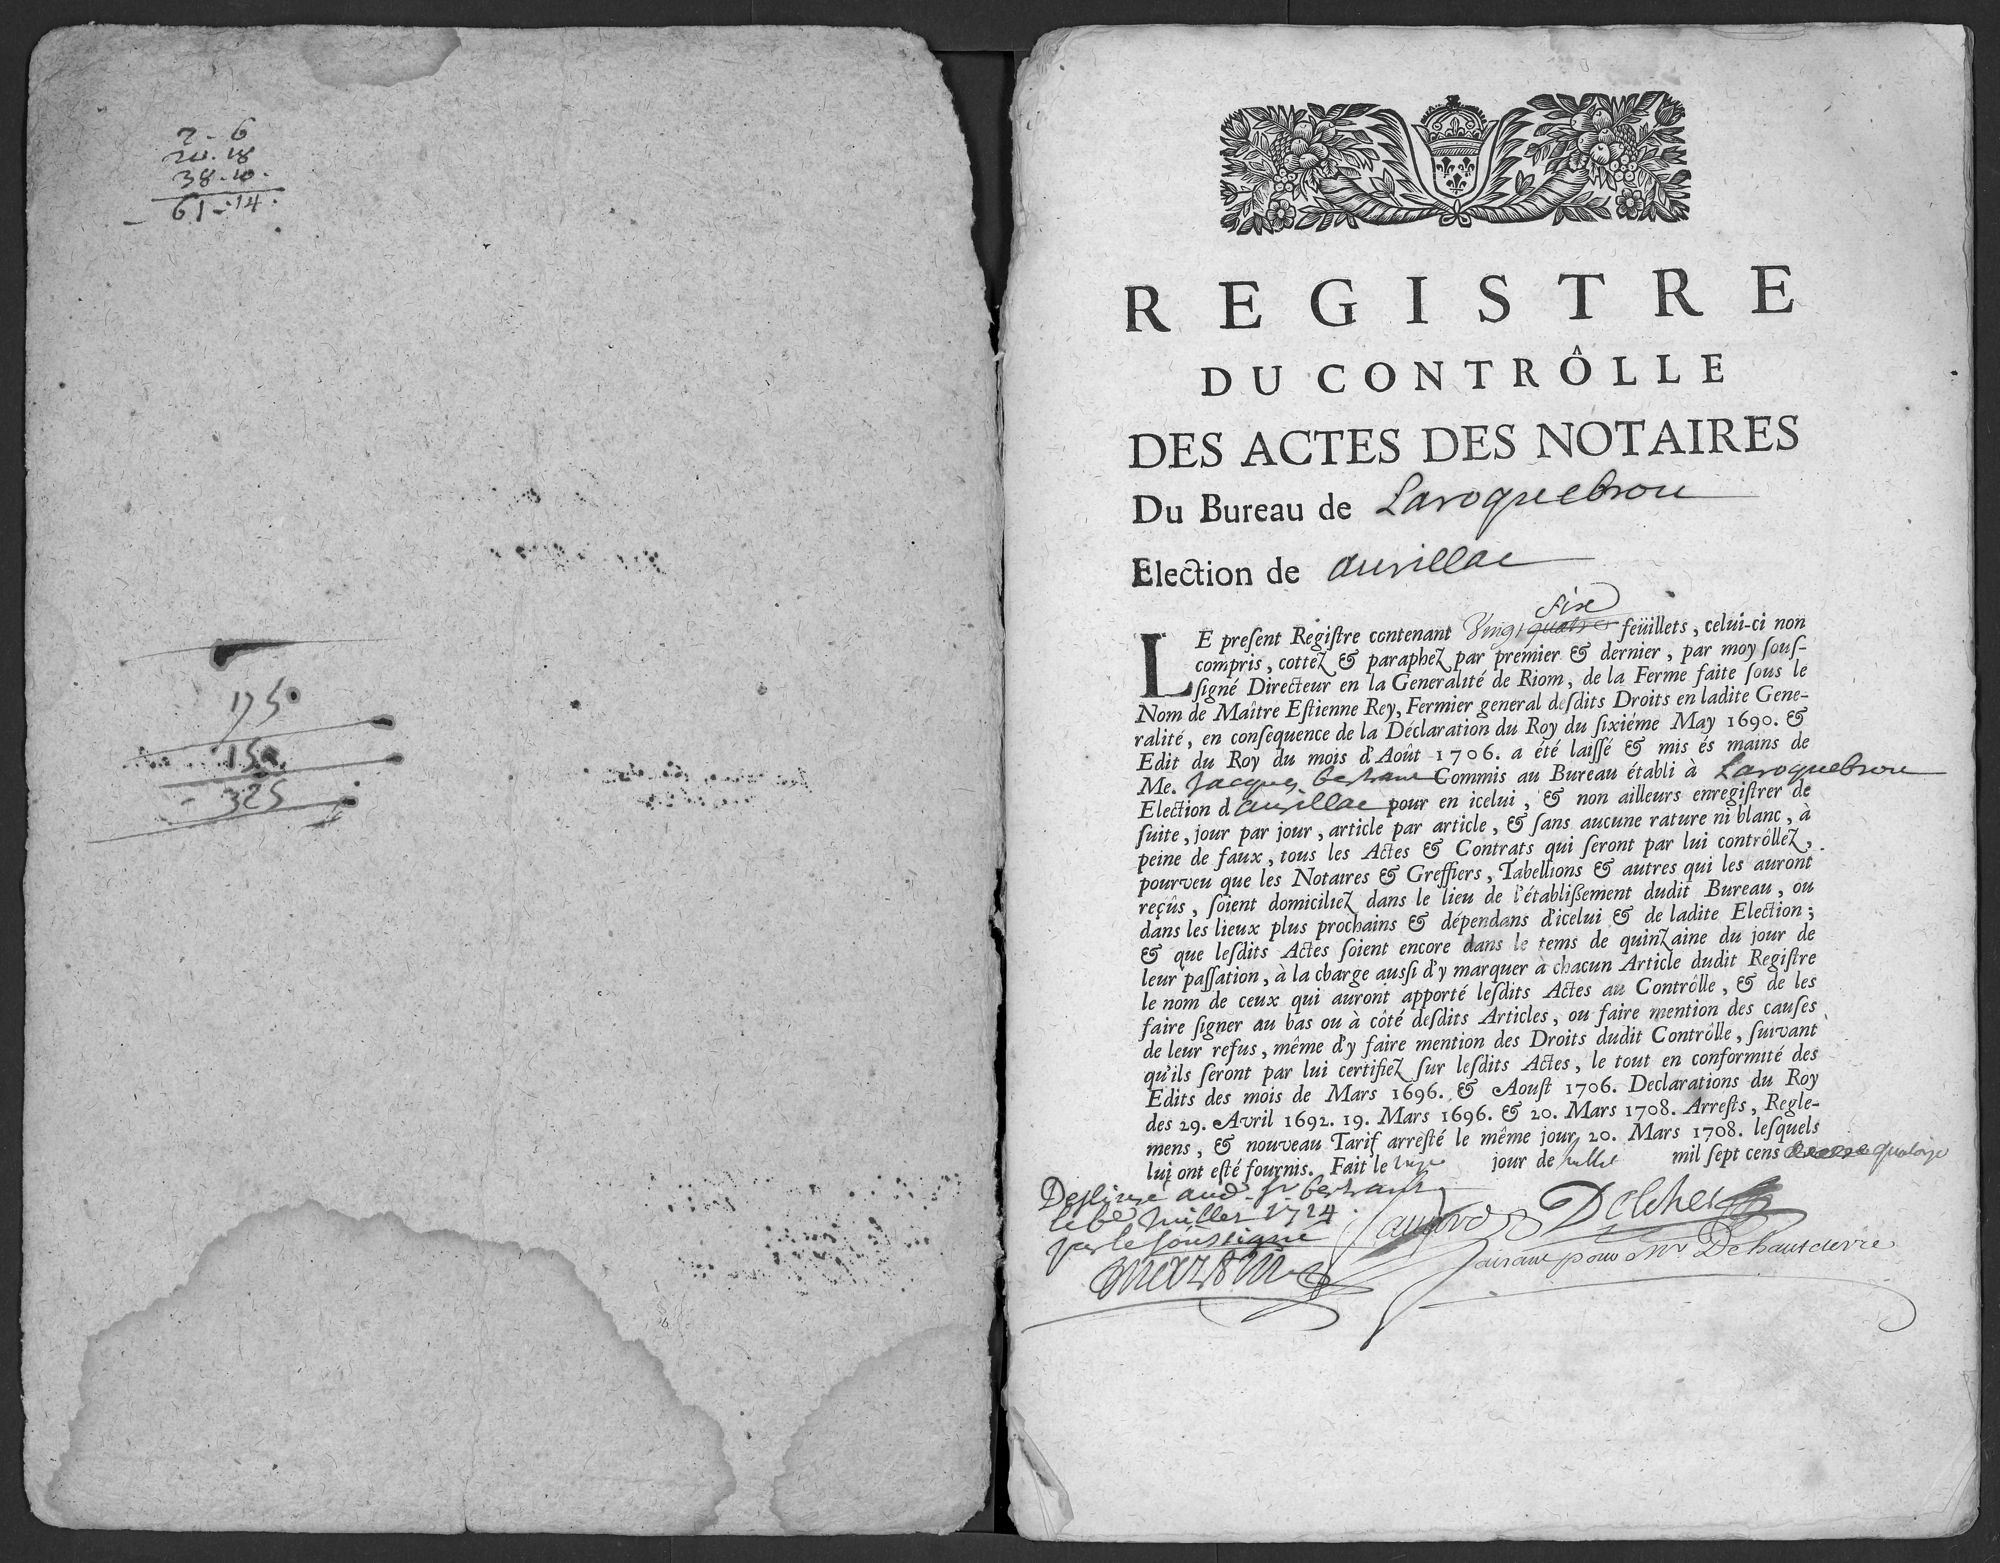 2 - 6
20 - 18
38 - 10 -
61 - 14 -
175
150
- 325
REGISTRE
DU CONTRÔLLE
DES ACTES DES NOTAIRES
Du Bureau de Laroquebrou
Election de aurillac
sixe
LE preſent Regiſtre contenant Vingt quatre feüillets, celui-ci non
compris, cottez & paraphez par premier & dernier, par moy ſouſ-
ſigné Directeur en la Generalité de Riom, de la Ferme faite ſous le
Nom de Maître Eſtienne Rey, Fermier general deſdits Droits en ladite Gene-
ralité, en conſequence de la Déclaration du Roy du ſixiéme May 1690. &
Edit du Roy du mois d'Août 1706. a été laiſſé & mis és mains de
Me. Jacques bertrand Commis au Bureau établi à Laroquebrou
Election d aurillac pour en icelui, & non ailleurs enregiſtrer de
ſuite, jour par jour, article par article, & ſans aucune rature ni blanc, à
peine de faux, tous les Actes & Contrats qui ſeront par lui contrôllez,
pourveu que les Notaires & Greffiers, Tabellions & autres qui les auront
reçûs, ſoient domiciliez dans le lieu de l'établiſſement dudit Bureau, ou
dans les lieux plus prochains & dépendans d'icelui & de ladite Election;
& que leſdits Actes ſoient encore dans le tems de quinzaine du jour de
leur paſſation, à la charge auſſi d'y marquer à chacun Article dudit Regiſtre
le nom de ceux qui auront apporté leſdits Actes au Contrôlle, & de les
faire ſigner au bas ou à côté deſdits Articles, ou faire mention des cauſes
de leur refus, même d'y faire mention des Droits dudit Contrôlle, ſuivant
qu'ils ſeront par lui certifiez ſur leſdits Actes, le tout en conformité des
Edits des mois de Mars 1696. & Aouſt 1706. Declarations du Roy
des 29. Avril 1692. 19. Mars 1696. & 20. Mars 1708. Arreſts, Regle-
mens, & nouveau Tarif arreſté le même jour 20. Mars 1708. leſquels
lui ont eſté fournis. Fait le jour de Juillet mil ſept cens quatorze
Deliuré aud. Sr bertrand
le 6e Juillet 1714.
par le soussigné
Delcher
faisant pour Mr Dehauteserre